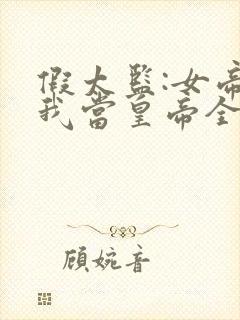 假太监:女帝
我當皇帝全
顾婉音